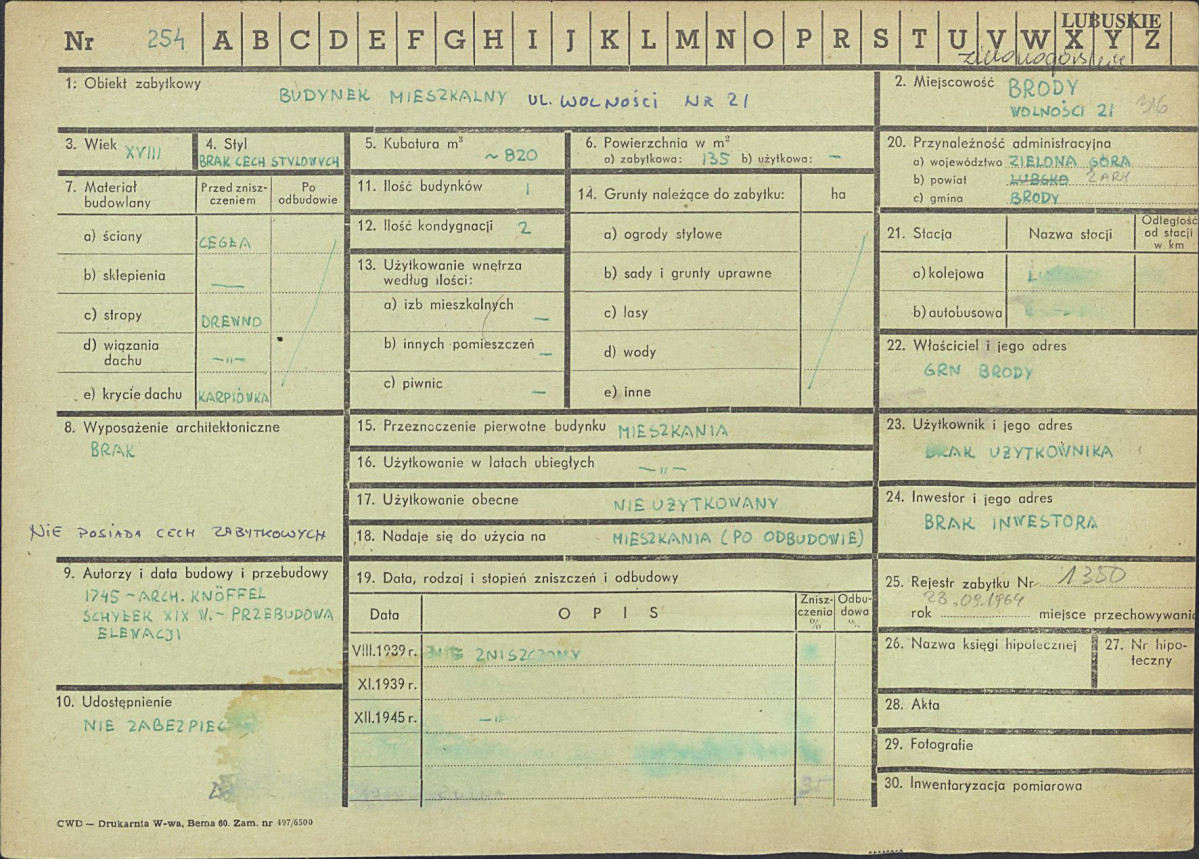 LUBUSKIE
Nr 254 A B C D E F G H I J K L M N O P R S T U V W X Y Z
1: Obiekt zabytkowy
BUDYNEK MIESZKALNY UL. WOLNOŚCI NR 21
2. Miejscowość BRODY
WOLNOŚCI 21 316
3. Wiek XVIII
4. Styl
BRAK CECH STYLOWYCH
5. Kubatura m³
~820
6. Powierzchnia w m²
a) zabytkowa: 135 b) użytkowa: —
7. Materiał budowlany
Przed zniszczeniem
Po odbudowie
a) ściany CEGŁA
b) sklepienia —
c) stropy DREWNO
d) wiązania dachu —„—
e) krycie dachu KARPIÓWKA
8. Wyposażenie architektoniczne
BRAK
NIE POSIADA CECH ZABYTKOWYCH
9. Autorzy i data budowy i przebudowy
1745 - ARCH. KNÖFFEL
SCHYŁEK XIX W. - PRZEBUDOWA
ELEWACJI
10. Udostępnienie
NIE ZABEZPIEC
11. Ilość budynków 1
12. Ilość kondygnacji 2
13. Użytkowanie wnętrza
według ilości:
a) izb mieszkalnych —
b) innych pomieszczeń —
c) piwnic —
14. Grunty należące do zabytku: ha
a) ogrody stylowe
b) sady i grunty uprawne
c) lasy
d) wody
e) inne
15. Przeznoczenie pierwotne budynku MIESZKANIA
16. Użytkowanie w latach ubiegłych —„—
17. Użytkowanie obecne NIE UŻYTKOWANY
18. Nadaje się do użycia na MIESZKANIA (PO ODBUDOWIE)
19. Data, rodzaj i stopień zniszczeń i odbudowy
Data
OPIS
Zniszczenia %
Odbudowa %
VIII.1939 r. NIE ZNISZCZONY
XI.1939 r.
XII.1945 r. —„
35
20. Przynależność administracyjna
a) województwo ZIELONA GÓRA
b) powiat LUBSKO ŻARY
c) gmina BRODY
21. Stacja
Nazwa stacji
Odległość od stacji w km
a) kolejowa
b) autobusowa
22. Właściciel i jego adres
GRN BRODY
23. Użytkownik i jego adres
BRAK UŻYTKOWNIKA
24. Inwestor i jego adres
BRAK INWESTORA
25. Rejestr zabytku Nr 1350
23.09.1964
rok miejsce przechowywani
26. Nazwa księgi hipotecznej
27. Nr hipoteczny
28. Akta
29. Fotografie
30. Inwentaryzacja pomiarowa
CWD — Drukarnia W-wa, Bema 60. Zam. nr 497/6500